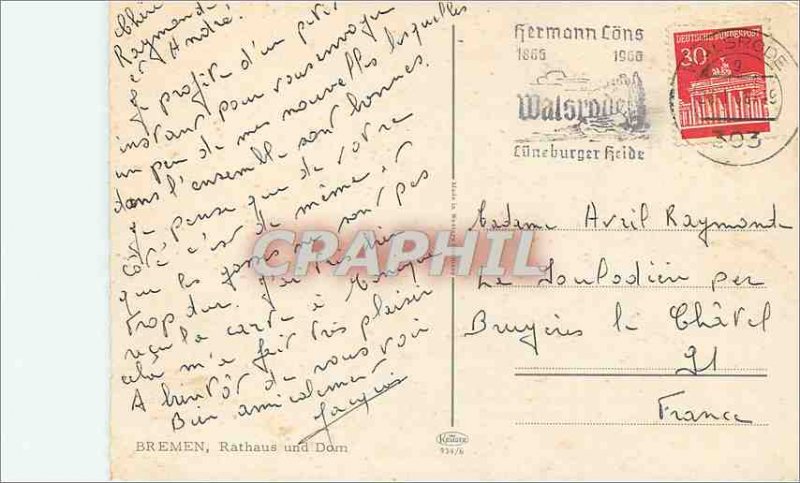 Chère
Raymonde
et André!
Je profite d'un petit
instant pour vous envoyer
un peu de mes nouvelles lesquelles
dans l'ensemble sont bonnes.
Je pense que de votre
côté c'est de même et
que les gosses ne sont pas
trop dur. J'ai très bien
reçu la carte à Monique
cela m'a fait très plaisir
A bientôt de vous voir
Bien amicalement
Jacques
BREMEN, Rathaus und Dom
Hermann Löns
1866 1966
Walsrode
Lüneburger Heide
DEUTSCHE BUNDESPOST
30
WALSRODE
303
Madame Avril Raymonde
Le par
Bruyères le Châtel
91
France
Krüger
934/6
CPAPHIL